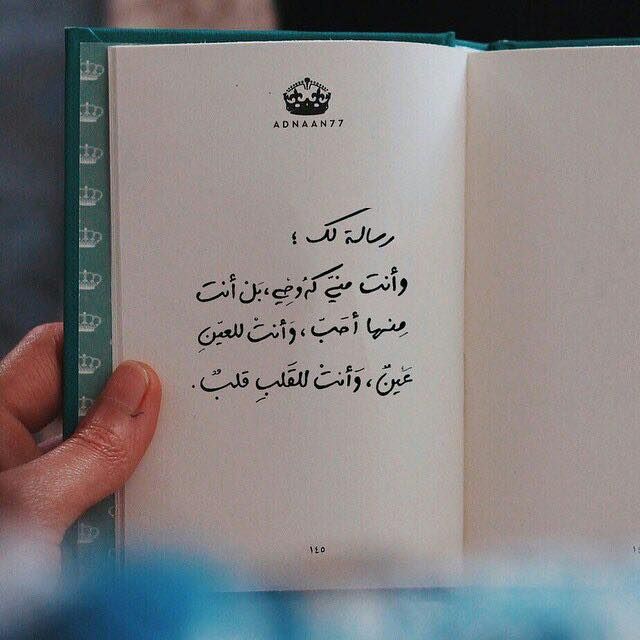 ADNAAN77
رسالة لك ؛
وأنت منّي كرُوحِي، بَل أنت
مِنها أحَبّ، وأنتْ للعيَنِ
عَينٌ، وَأنتْ للقَلبِ قلبٌ.
١٤٥